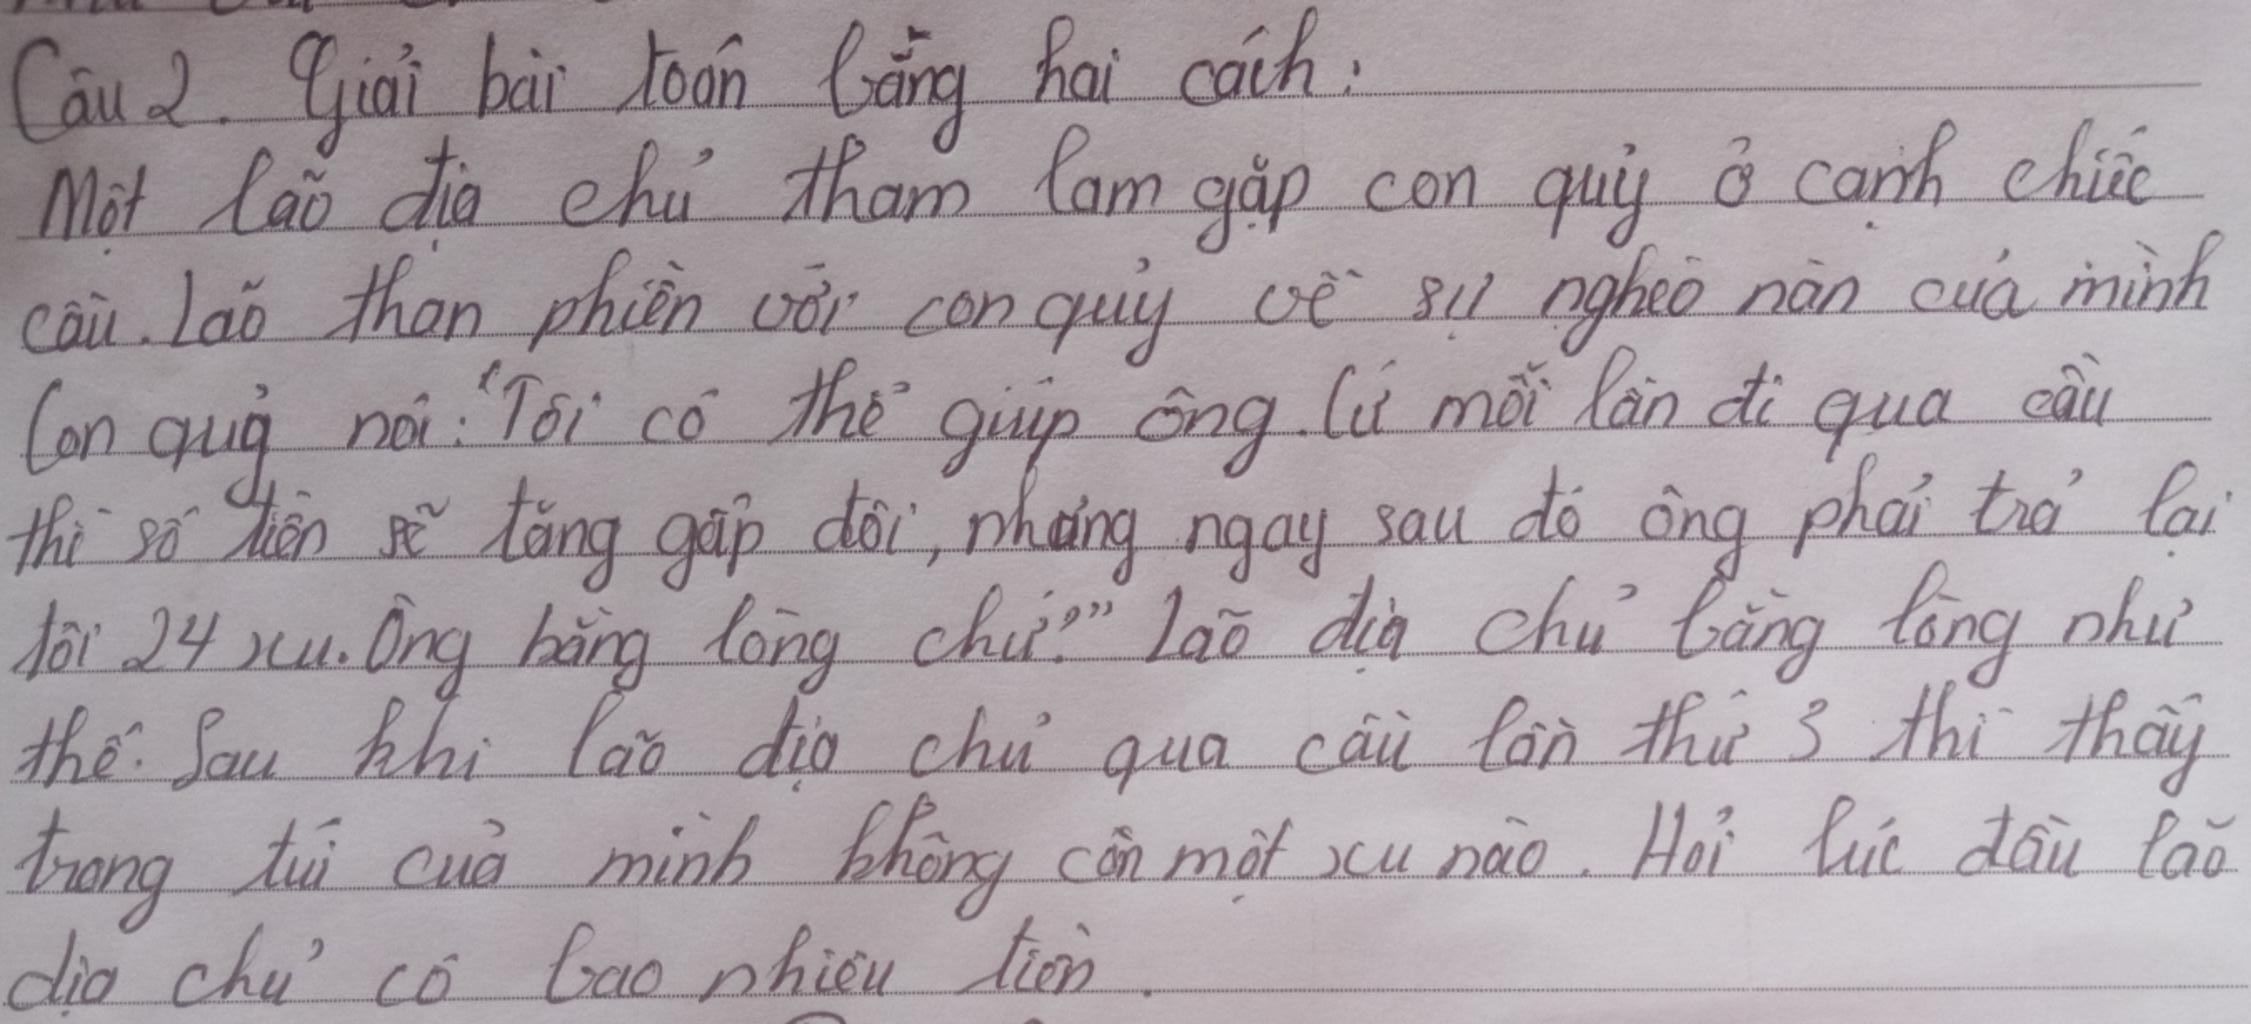 Câu 2. Giải bài toán bằng hai cách:
Một lão địa chủ tham lam gặp con quỷ ở cạnh chiếc
cầu. Lão than phiền với con quỷ về sự nghèo nàn của mình
Con quỷ nói: "Tôi có thể giúp ông. Cứ mỗi lần đi qua cầu
thì số tiền sẽ tăng gấp đôi, nhưng ngay sau đó ông phải trả lại
tôi 24 xu. Ông bằng lòng chứ?" Lão địa chủ bằng lòng như
thế. Sau khi lão địa chủ qua cầu lần thứ 3 thì thấy
trong túi của mình không còn một xu nào. Hỏi lúc đầu lão
địa chủ có bao nhiêu tiền.